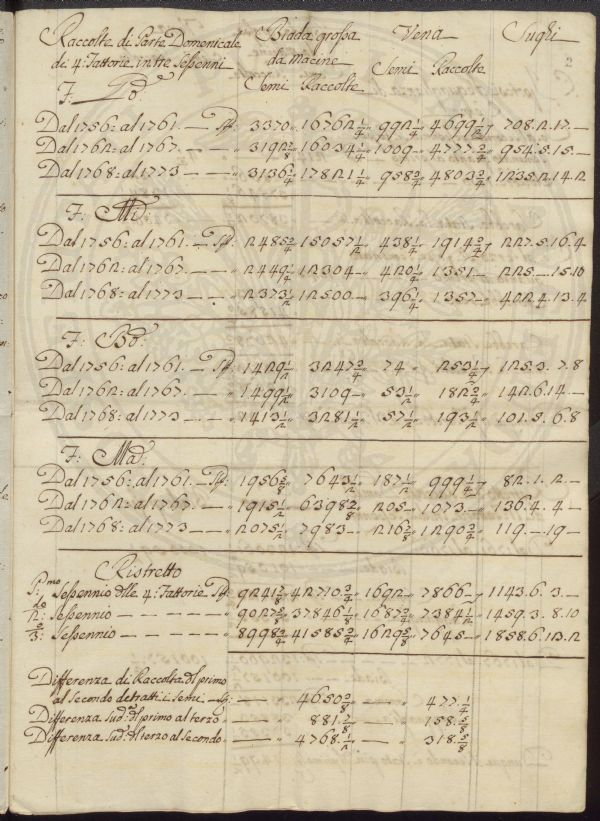 Raccolte di Parte Domenicale Biada grossa Vena Sughi
di 4: Fattorie, in tre Sessenni da Macine Semi Raccolte
Semi Raccolte
F: Po:
Dal 1756: al 1761. — Sf: 3370 „ 16762 1/4 „ 992 1/4 „ 4699 1/2 „ 708. 2. 17. —
Dal 1762: al 1767. — — „ 3192 5/8 „ 16034 1/4 „ 1009 — „ 4777 3/4 „ 954. 5. 15. —
Dal 1768: al 1773 — — „ 3136 3/4 „ 17821 1/4 „ 958 3/4 „ 4803 3/4 „ 1235. 2. 14. 2
F: Mi:
Dal 1756: al 1761. — Sf: 2485 3/4 „ 15057 1/2 „ 438 1/4 „ 1914 3/4 „ 227. 5. 16. 4
Dal 1762: al 1767. — — „ 2449 1/4 „ 12304 — „ 420 1/4 „ 1351 — „ 225. — 15. 10
Dal 1768: al 1773 — — „ 2373 1/2 „ 12500 — „ 396 1/4 „ 1357 — „ 402. 4. 13. 4
F: Bo:
Dal 1756: al 1761. — Sf: 1429 1/2 „ 3247 3/4 „ 74 „ 253 1/4 „ 125. 3. 7. 8
Dal 1762: al 1767. — „ 1499 1/2 „ 3109 — „ 53 1/2 „ 182 3/4 „ 142. 6. 14. —
Dal 1768: al 1773 — — „ 1413 1/2 „ 3281 1/2 „ 57 1/2 „ 193 1/2 „ 101. 5. 6. 8
F: Ma:
Dal 1756: al 1761. — Sf: 1956 5/8 „ 7643 1/2 „ 187 1/2 „ 999 1/4 „ 82. 1. 2. —
Dal 1762: al 1767. — — „ 1915 1/2 „ 6398 3/8 „ 205 — „ 1073 — „ 136. 4. 4. —
Dal 1768: al 1773 — — „ 2075 1/2 „ 7983 — „ 216 5/8 „ 1290 3/4 „ 119. — 19 —
Ristretto
P:mo Sessennio dlle 4: Fattorie Sf: 9241 7/8 „ 42710 3/4 „ 1692 — „ 7866 — „ 1143. 6. 3. —
2:do Sessennio — — — — — „ 9027 5/8 „ 37846 1/8 „ 1687 3/4 „ 7384 1/2 „ 1459. 3. 8. 10
3: Sessennio — — — — — „ 8998 3/4 „ 41585 3/4 „ 1629 5/8 „ 7645 — „ 1858. 6. 13. 2
Differenza di Raccolta dl primo
al Secondo detratti i Semi — Sf: — 4650 3/8 „ — „ 477. 1/4
Differenza sud:a dl primo al terzo „ — 881. 7/8 „ — „ 158. 5/8
Differenza sud: dl terzo al Secondo „ — 4768. 1/2 „ — „ 318. 5/8